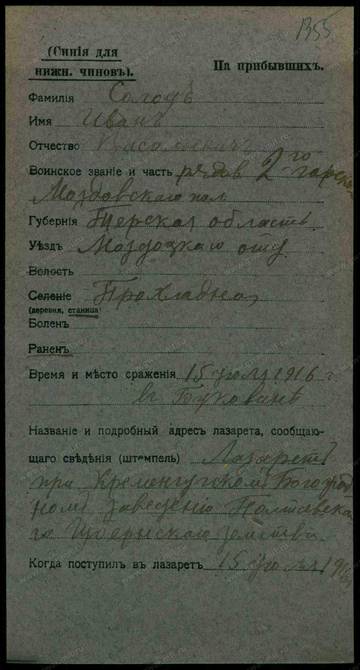 1355.
(Синія для
нижн. чиновъ).
На прибывшихъ.
Фамилія Солодъ
Имя Иванъ
Отчество
Воинское званіе и часть рядов 2го
Моздовскаго пол
Губернія Терская область
Уѣздъ Моздоцкаго отд
Волость
Селеніе Прохладная
(деревня, станица)
Боленъ
Раненъ
Время и мѣсто сраженія 15 июля 1916 г
въ Буковинѣ
Названіе и подробный адресъ лазарета, сообщаю-
щаго свѣдѣнія (штемпель) Лазаретъ
при Кременчугскомъ Богоугод
номъ заведеніи Полтавска
го Губернскаго Земства
Когда поступилъ въ лазаретъ 15 июля 1916